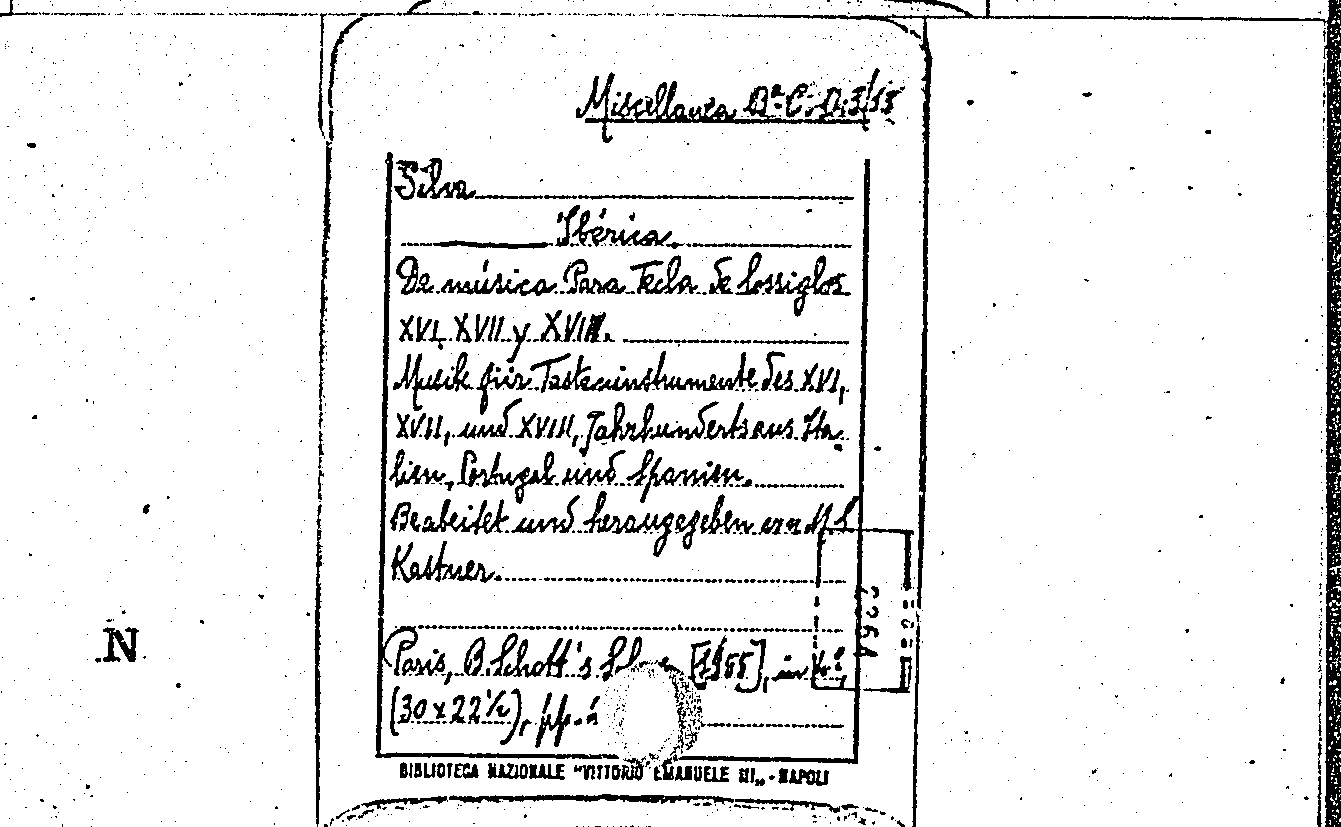 Miscellanea Bª C. D. 3/
Silva
Ibérica.
De música Para Tecla de lossiglos
XVI, XVII y XVIII.
Musik für Tasteninstrumente des XVI,
XVII, und XVIII, Jahrhunderts aus Ita-
lien, Portugal und Spanien.
Beabeitet und heraugegeben M. S.
Kastner.
Paris, B. Schott's [1955], in 4º,
(30 x 22½), pp.
BIBLIOTECA NAZIONALE "VITTORIO EMANUELE III„ - NAPOLI
N